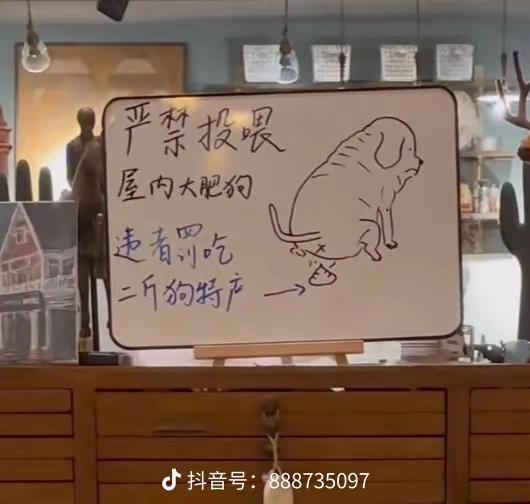 严禁投喂
屋内大肥狗
违者罚吃
二斤狗特产
抖音号：888735097